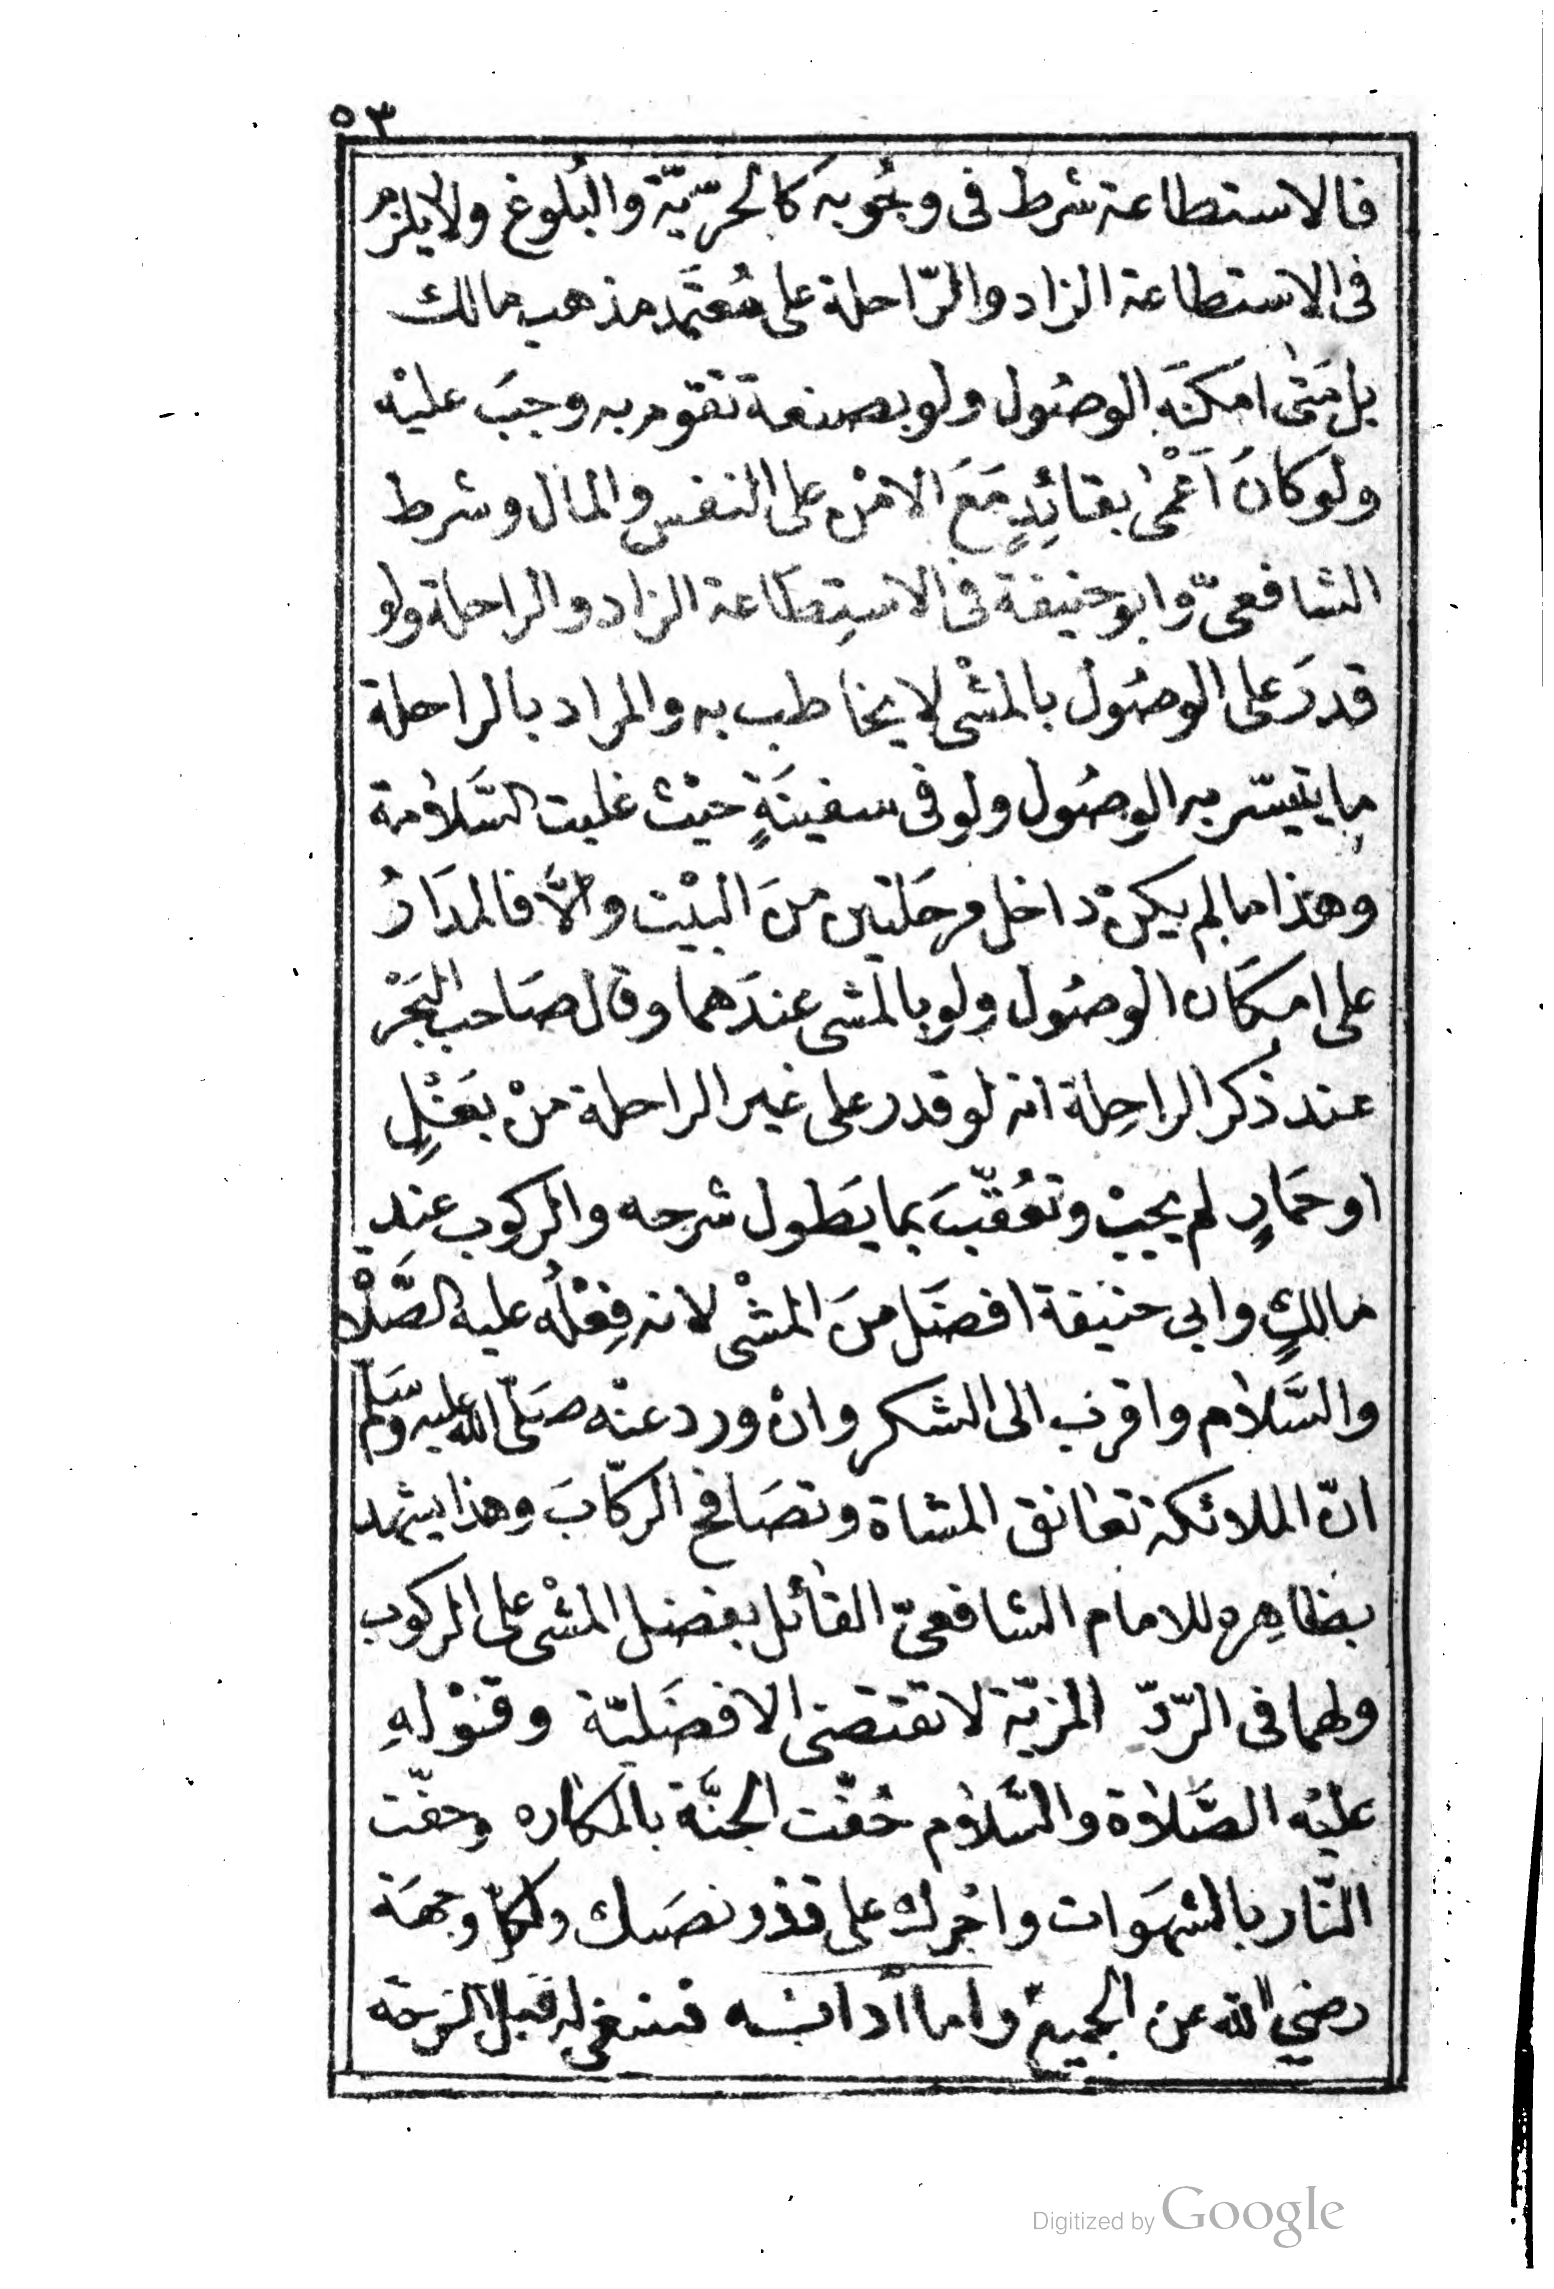 ٥٣
فالاستطاعة شرط فى وجُوبه كالحرّيّة والبُلوغ ولا يلزم
فى الاستطاعة الزاد والرّاحلة على مُعتَمد مذهب مالك
بل مَتٰى امكنَه الوصُول ولو بصنعة تقوم به وجبَ عليْه
ولو كانَ اَعْمٰى بقائِدٍ مَعَ الامْن على النفس والمال وشرط
الشافعىّ وابو حنيفة فى الاستِطَاعة الزاد والراحلة ولو
قدرَ على الوصُول بالمشْى لا يخاطب به والمراد بالراحلة
ما يتيسّر به الوصُول ولو فى سفينَةٍ حيْث غلبت السَّلاٰمة
وهذا ما لم يكنْ داخل مرحَلتين منَ البيْت والَّا فالمدَارُ
على امكَان الوصُول ولو بالمشى عندَهما وقال صَاحب البَحْر
عند ذكر الراحِلة انه لو قدر على غير الراحلة منْ بَغْلٍ
او حَمارٍ لم يجبْ وتعُقّبَ بما يَطول شرحه والركوب عند
مالكٍ وابى حنيفة افضَل منَ المشْى لانه فِعْلُه عليه الصَّلاٰة
والسَّلاٰم واقرب الى الشكر وانْ ورد عنْه صَلّى الله عليه وسَلّم
انّ الملائكة تعٰانق المشاة وتصَافح الركّابَ وهذا يشهد
بظاهِره للامام الشافعىّ القائل بفضل المشْى على الركوب
ولهما فى الرّدّ المزيّة لا تقتضى الافضَليّة وقوْلهِ
عليْه الصَّلاٰة والسَّلاٰم حُفّت الجنَّة بالمكاره وحفّت
النّار بالشهَوات واجْرك على قدر نصَبك ولكلّ وجهَة
رضي الله عن الجميع واما آدابه فينبغى له قبل